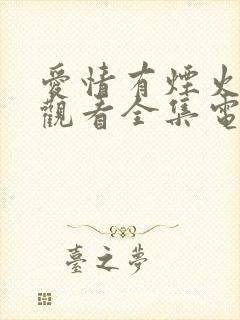 愛情有煙火
觀看全集電
臺之夢